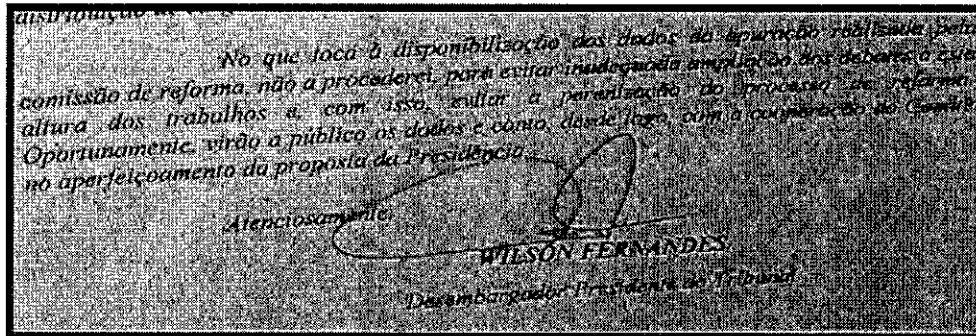 distribuição de
No que toca à disponibilização dos dados da apuração realizada pela
comissão de reforma, não a procederei, para evitar inadequada ampliação dos debates a esta
altura dos trabalhos e, com isso, evitar a paralização do processo de reforma.
Oportunamente, virão a público os dados e conto, desde logo, com a cooperação do
no aperfeiçoamento da proposta da Presidência.
Atenciosamente,
WILSON FERNANDES
Desembargador Presidente do Tribunal